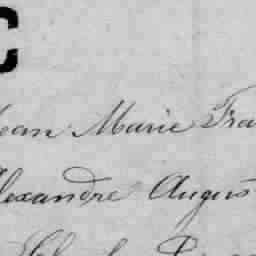 C
Jean Marie Fra
Alexandre Augus